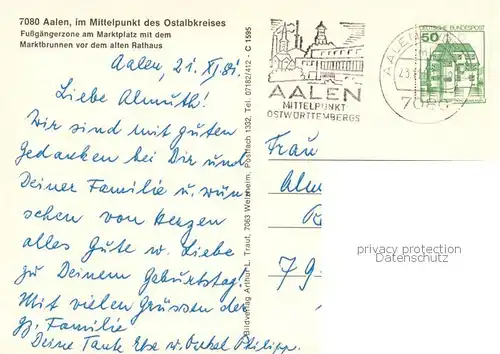 7080 Aalen, im Mittelpunkt des Ostalbkreises
Fußgängerzone am Marktplatz mit dem
Marktbrunnen vor dem alten Rathaus
Aalen, 21. XI. 81.
Liebe Almuth!
Wir sind mit guten
Gedanken bei Dir und
Deiner Familie u. wün
schen von Herzen
alles Gute u. Liebe
zu Deinem Geburtstag!
Mit vielen Grüssen der
gz. Familie
Deine Tante Else u. Onkel Philipp.
Bildverlag Arthur L. Traut, 7063 Welzheim, Postfach 1332, Tel. 07182/412 - C 1595
AALEN
MITTELPUNKT
OSTWÜRTTEMBERGS
AALEN
7080
50
DEUTSCHE BUNDESPOST
Frau
Alm
79
privacy protection
Datenschutz